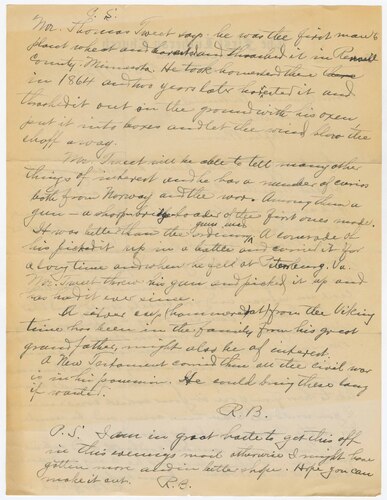 J. E.
Mr. Thomas Tweet says he was the first man to
plant wheat and and thrashed it in
County, Minnesota. He took homestead there
in 1864 and two years later it and
thrashed it out on the ground with his oxen,
put it into boxes and let the wind blow the
chaff away.
Mr. Tweet will be able to tell many other
things of interest and he has a number of curios
both from Norway and the war. Among them a
gun – a sharp loader of the first ones made.
It was better than the guns were. A comrade of
his picked it up in a battle and carried it for
a long time and when he fell at Va.
Mr. Tweet threw his gun and picked it up and
has had it ever since.
A silver cup (hammered out) from the Viking
time has been in the family from his great
grandfather, might also be of interest.
A New Testament carried thru all the civil war
is in his possession. He could bring these along
if wanted.
R.B.
P.S. I am in great haste to get this off
in this evenings mail otherwise I might have
gotten more and in better shape. Hope you can
make it out. R.B.